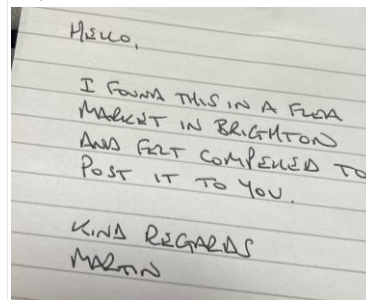 HELLO,
I FOUND THIS IN A FLEA
MARKET IN BRIGHTON
AND FELT COMPELLED TO
POST IT TO YOU.
KIND REGARDS
MARTIN